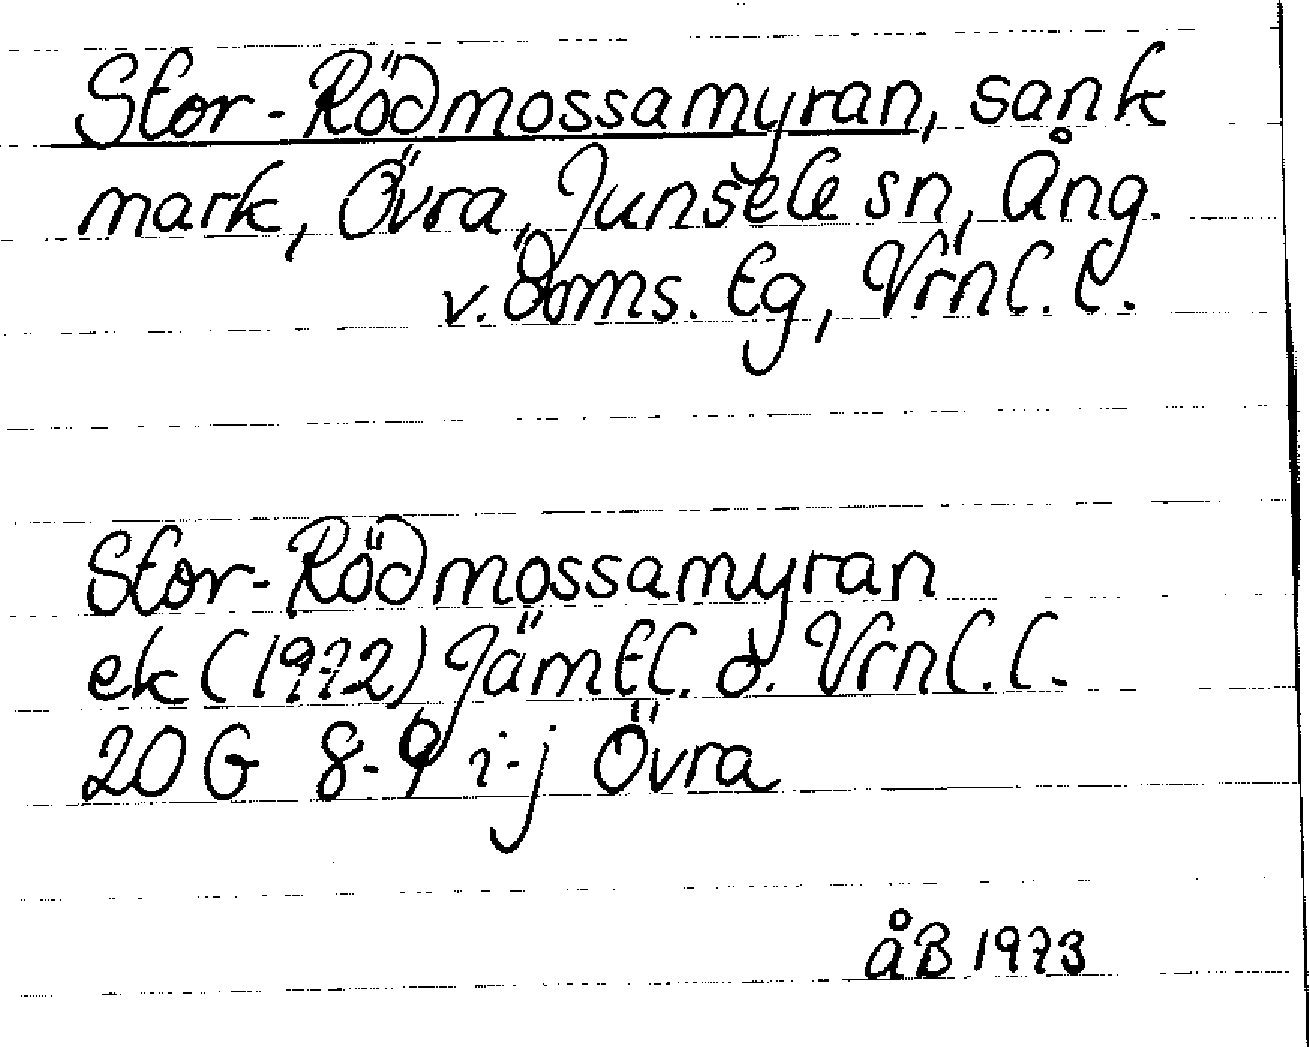 Stor-Rödmossamyran, sank
mark, Övra, Junsele sn, Ång.
v. Örms. tg, Vrnl. l.
Stor-Rödmossamyran
ek (1972) Jämtl. d. Vrnl. l.
20G 8-9 i-j Övra
åB 1973